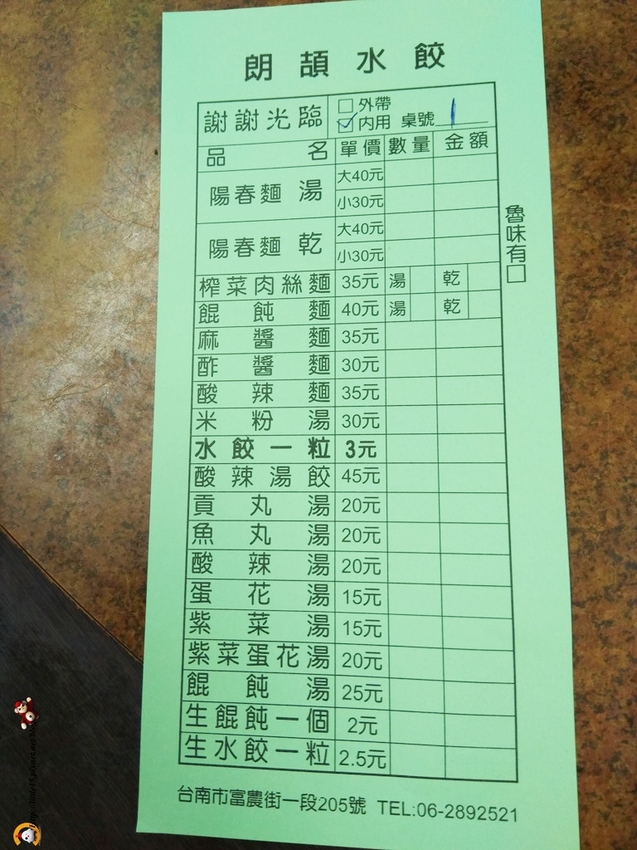 朗頡水餃
謝謝光臨 □外帶
☑内用 桌號 1
品名 單價 數量 金額
陽春麵 湯 大40元
小30元
陽春麵 乾 大40元
小30元
榨菜肉絲麵 35元 湯 乾
餛飩麵 40元 湯 乾
麻醬麵 35元
酢醬麵 30元
酸辣麵 35元
米粉湯 30元
水餃一粒 3元
酸辣湯餃 45元
貢丸湯 20元
魚丸湯 20元
酸辣湯 20元
蛋花湯 15元
紫菜湯 15元
紫菜蛋花湯 20元
餛飩湯 25元
生餛飩一個 2元
生水餃一粒 2.5元
魯味有□
台南市富農街一段205號 TEL:06-2892521